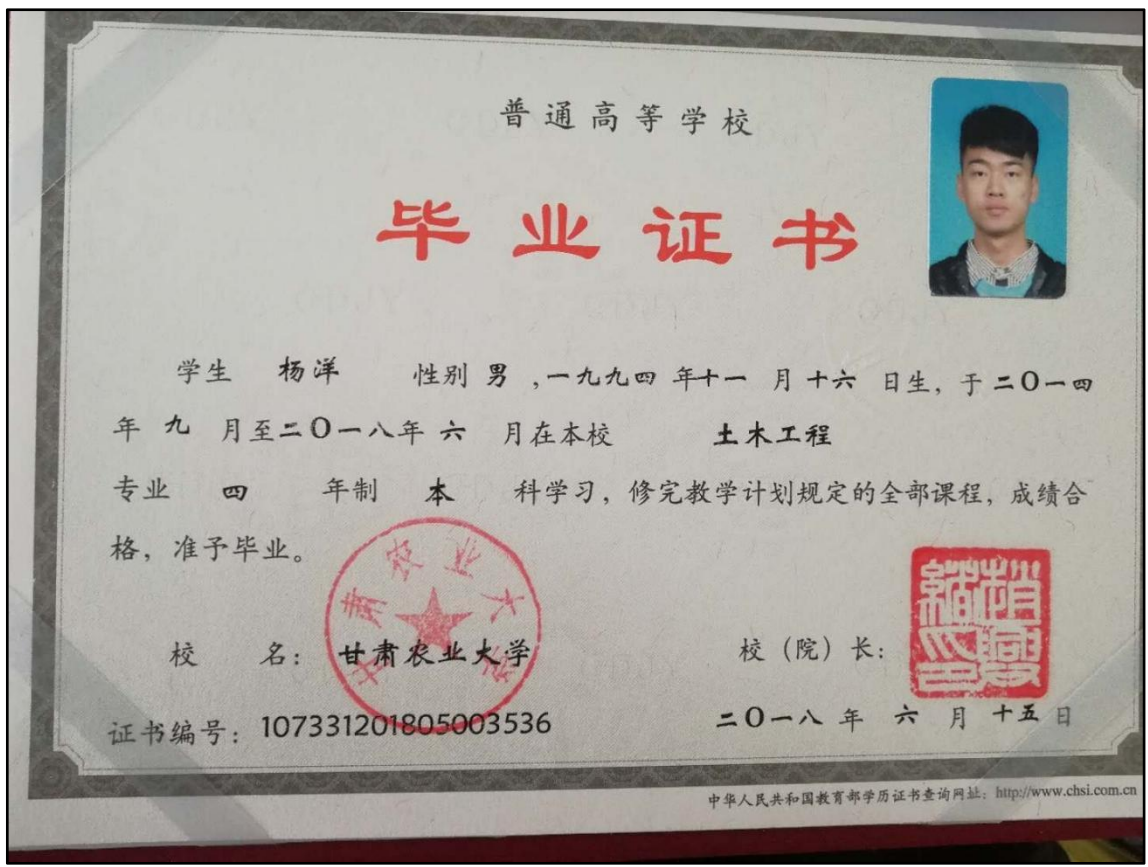 普通高等学校
毕业证书
学生 杨洋 性别 男 ,一九九四 年十一 月 十六 日生, 于 二〇一四
年 九 月至二〇一八年 六 月在本校 土木工程
专业 四 年制 本 科学习, 修完教学计划规定的全部课程, 成绩合
格, 准予毕业。
甘肃农业大学
校 名: 甘肃农业大学
校 (院) 长:
证书编号: 107331201805003536
二〇一八 年 六 月 十五 日
中华人民共和国教育部学历证书查询网址: http://www.chsi.com.cn